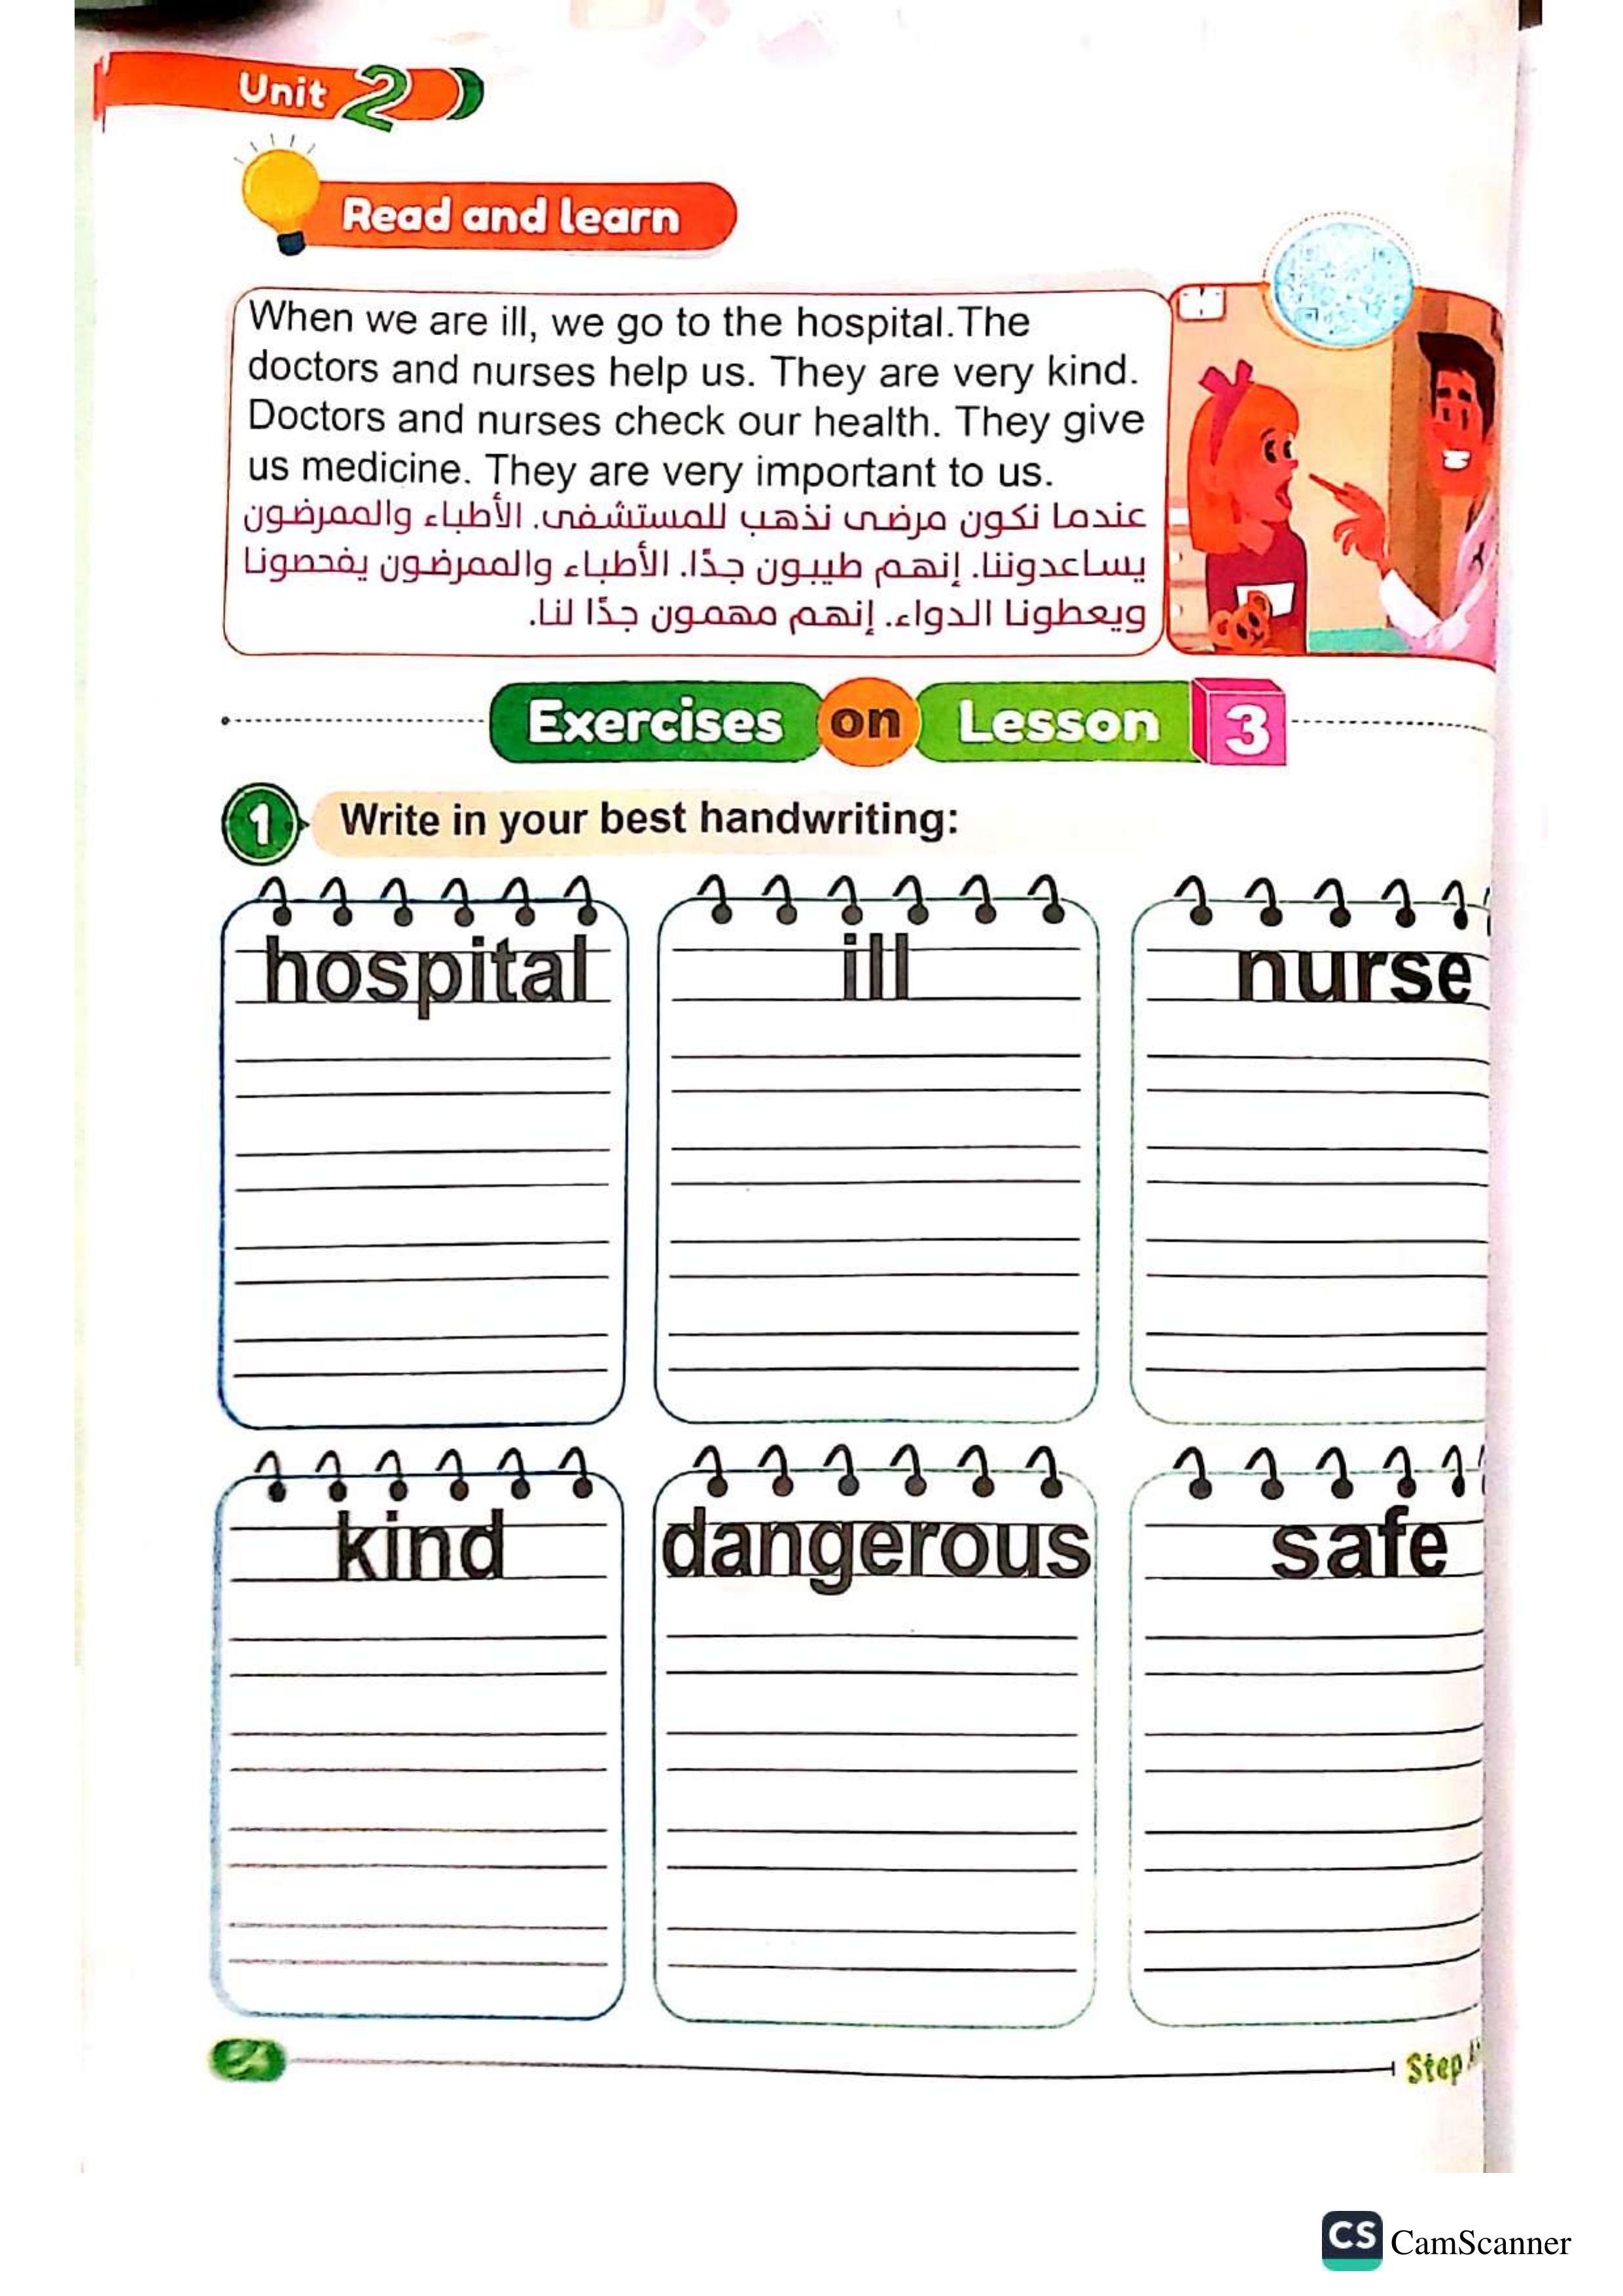 Unit 2
Read and learn
When we are ill, we go to the hospital.The
doctors and nurses help us. They are very kind.
Doctors and nurses check our health. They give
us medicine. They are very important to us.
عندما نكون مرضى نذهب للمستشفى. الأطباء والممرضون
يساعدوننا. إنهم طيبون جدًا. الأطباء والممرضون يفحصونا
ويعطونا الدواء. إنهم مهمون جدًا لنا.
Exercises on Lesson 3
1 Write in your best handwriting:
hospital ill nurse
kind dangerous safe
Step
CS CamScanner